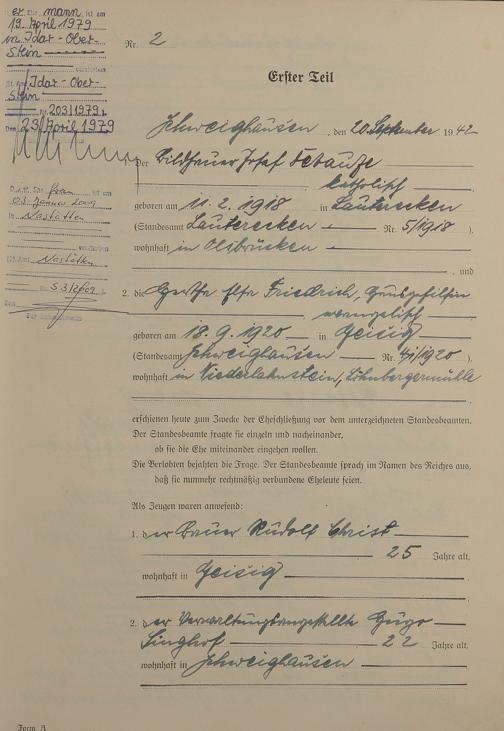 Der Ehemann ist am
19. April 1979
in Idar-Ober-
Stein
verstorben
St.Amt Idar-Ober-
Stein
Nr. 203/1979
Den 23. April 1979
Die Frau ist am
03. Januar
in Nastätten
verstorben
St.Amt Nastätten
Nr. 2
Erster Teil
Schweighausen, den 20. September 1942
Der Bildhauer Josef
katholisch
geboren am 11.2.1918 in Lauterecken
(Standesamt Lauterecken Nr. 5/1918 ).
wohnhaft in Olsbrücken
, und
2. die Gertha Else Friedrich, Hausgehilfin
evangelisch
geboren am 18.9.1920 in Geisig
(Standesamt Schweighausen Nr. 41/1920 ).
wohnhaft in Niederlahnstein, Löhnbergermühle
erschienen heute zum Zwecke der Eheschließung vor dem unterzeichneten Standesbeamten.
Der Standesbeamte fragte sie einzeln und nacheinander,
ob sie die Ehe miteinander eingehen wollen.
Die Verlobten bejahten die Frage. Der Standesbeamte sprach im Namen des Reiches aus,
daß sie nunmehr rechtmäßig verbundene Eheleute seien.
Als Zeugen waren anwesend:
1. der Bauer Rudolf Christ
25 Jahre alt,
wohnhaft in Geisig
2. der Verwaltungsangestellte Hugo
Singhof 22 Jahre alt,
wohnhaft in Schweighausen
Form. A